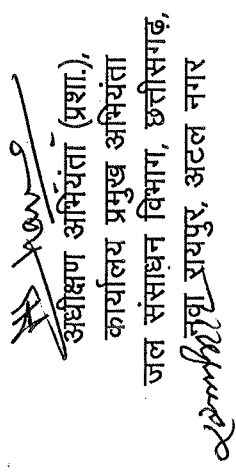 अधीक्षण अभियंता (प्रशा.),
कार्यालय प्रमुख अभियंता
जल संसाधन विभाग, छत्तीसगढ़,
नवा रायपुर, अटल नगर